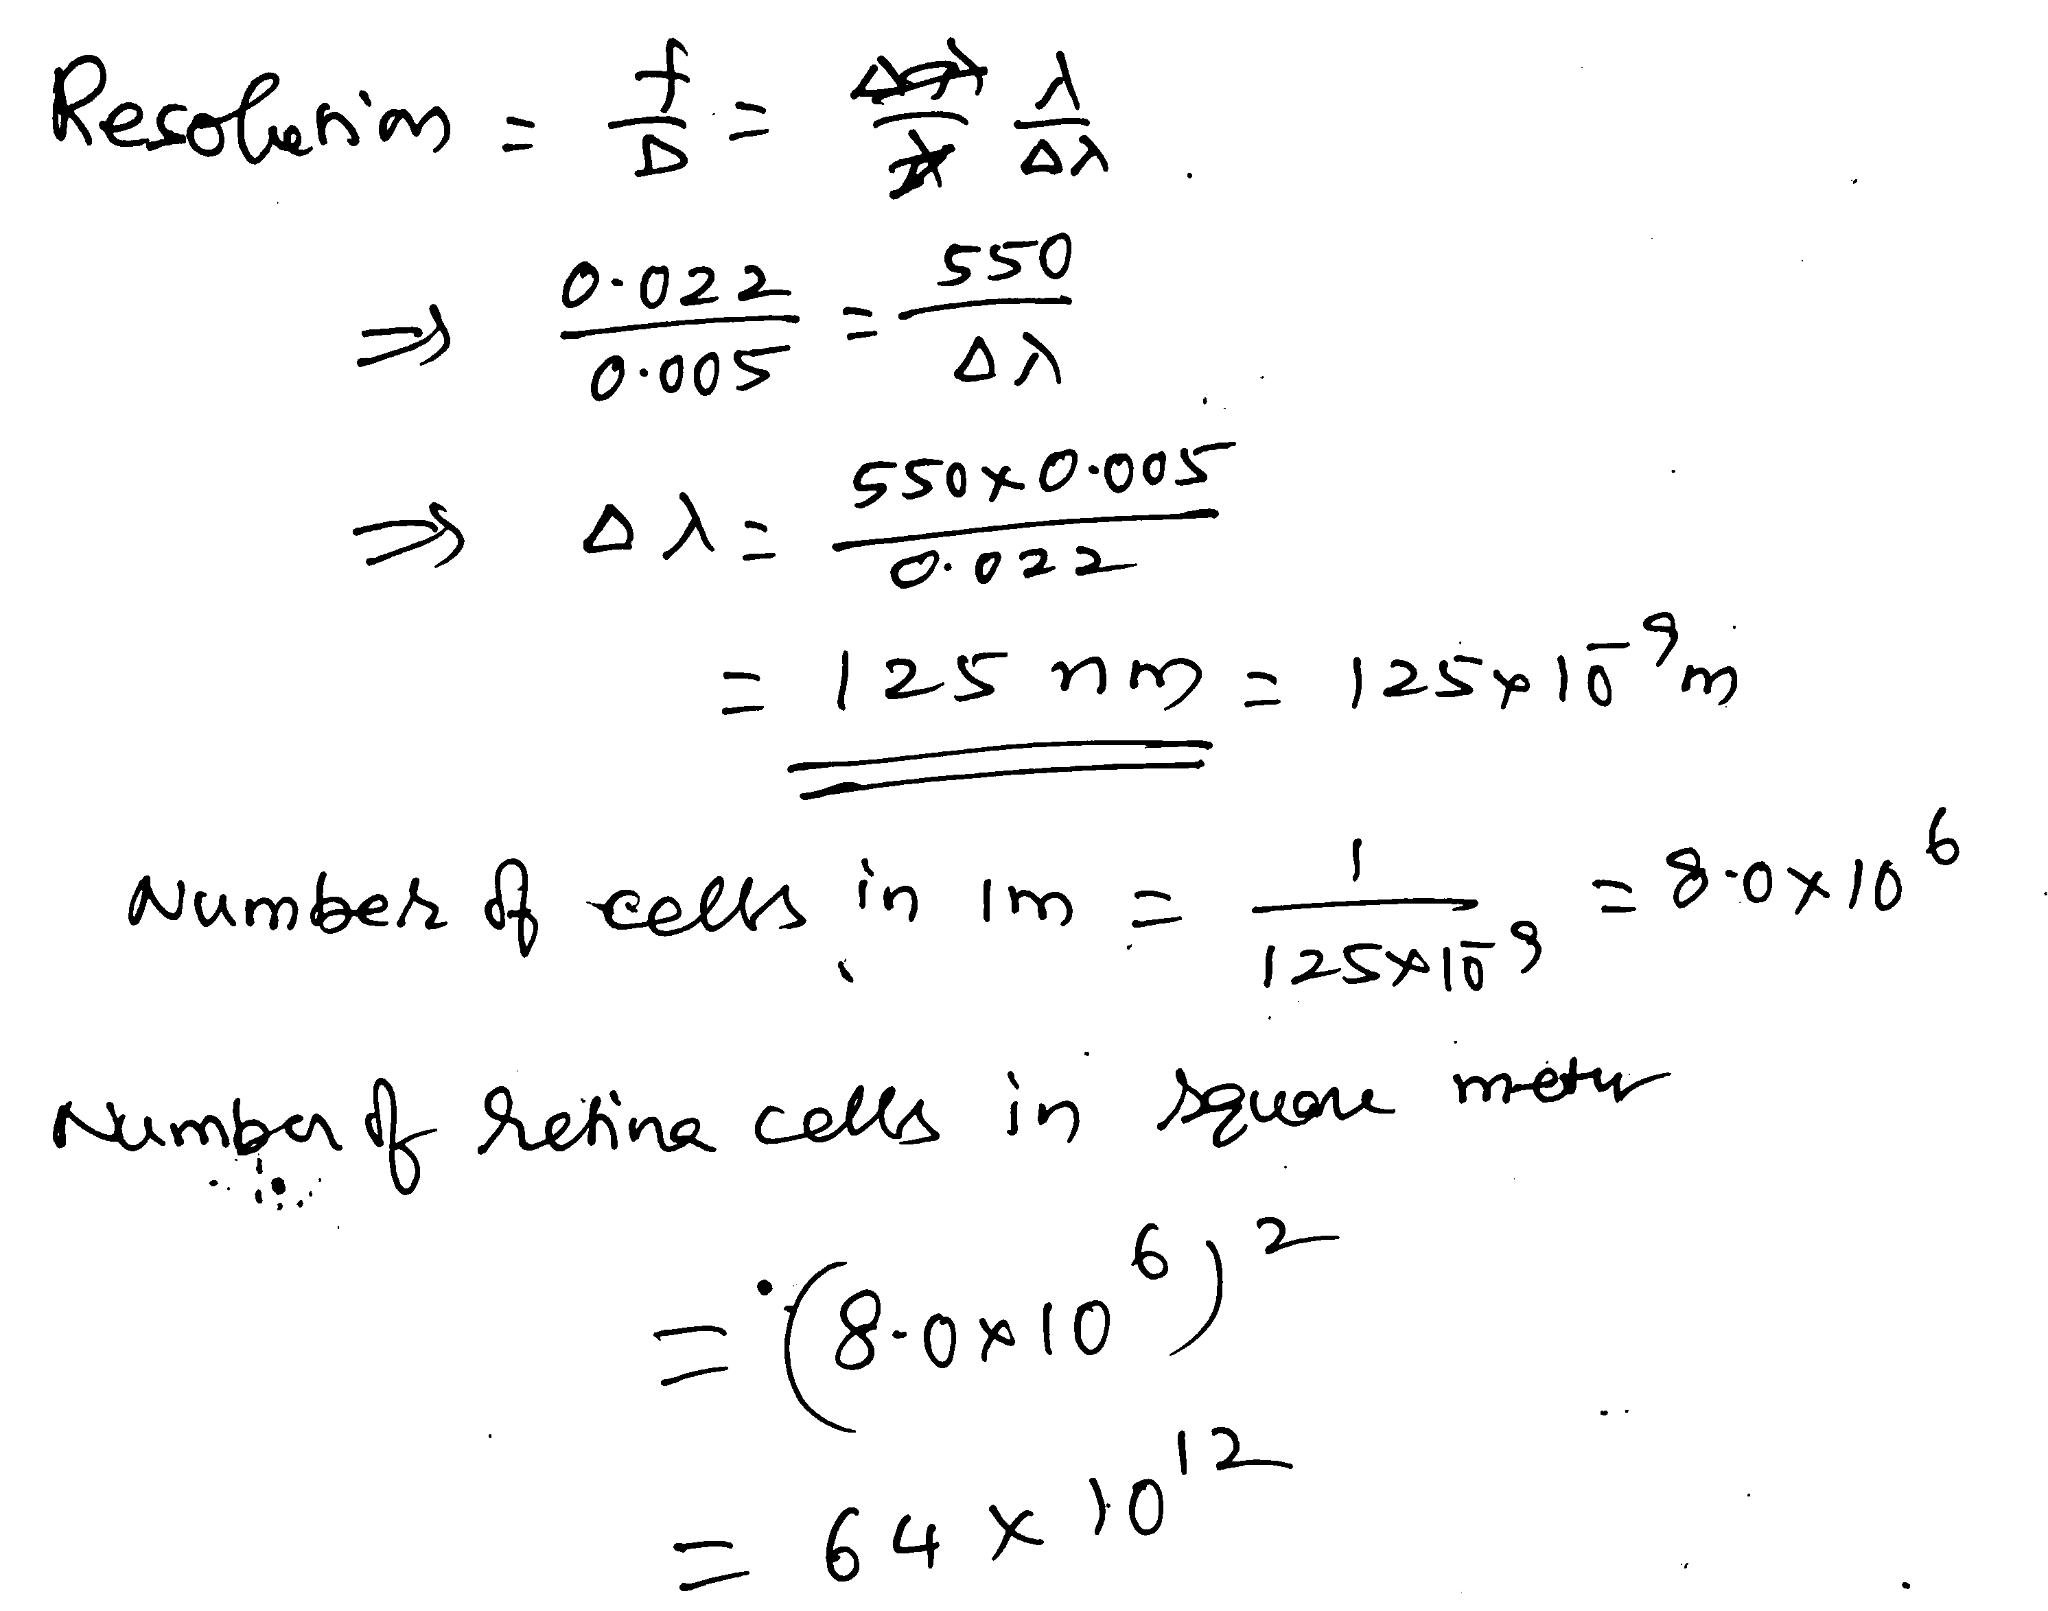 Resolution = f/D = λ/Δλ
⇒ 0.022/0.005 = 550/Δλ
⇒ Δλ = 550×0.005/0.022
= 125 nm = 125×10⁻⁹m
Number of cells in 1m = 1/125×10⁻⁹ = 8.0×10⁶
Number of retina cells in square meter
= (8.0×10⁶)²
= 64 × 10¹²